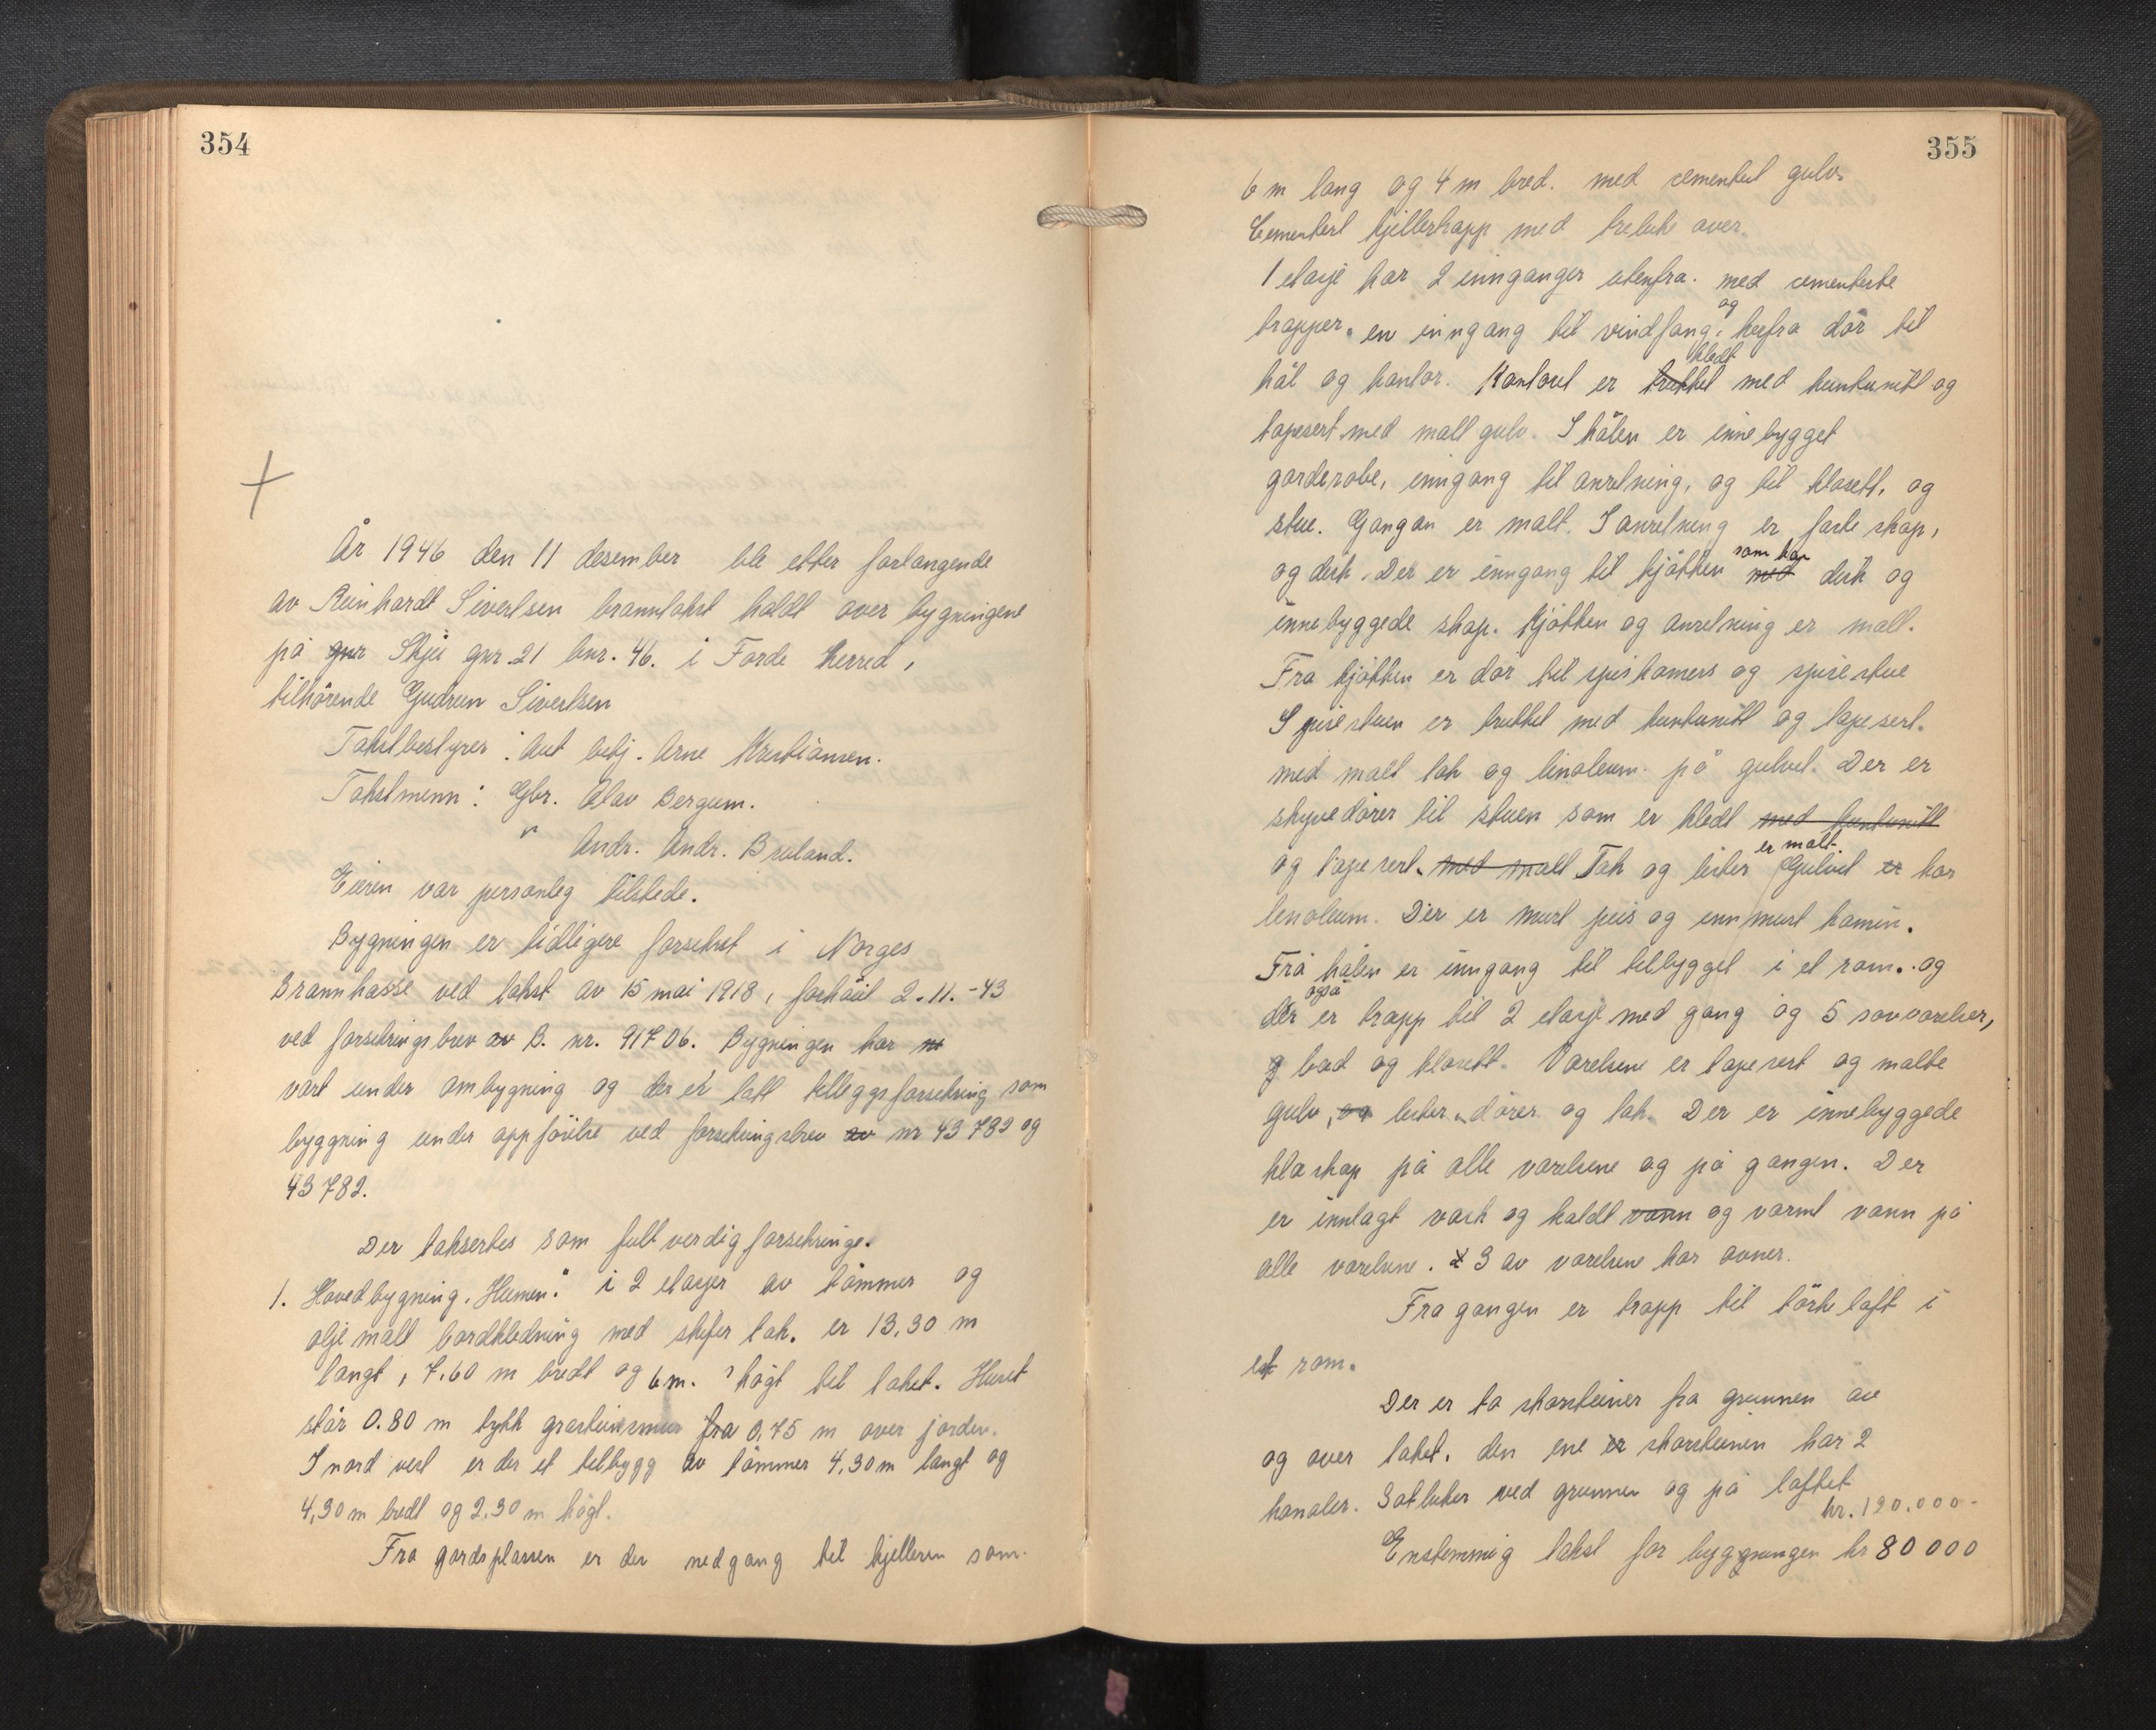 354
År 1946 den 11 desember ble etter forlangende
av Reinhardt Sivertsen branntakst holdt over bygningene
på gnr Skjei gnr. 21 bnr. 46. i Førde Herred,
tilhörende Gudrun Sivertsen
Takstbestyrer: Aut betj. Arne Kristiansen.
Takstmenn: Gbr. Olav Bergum.
" Andr. Andr. Bruland.
Eieren var personleg tilstede.
Bygningen er tidligere forsikret i Norges
Brannkasse ved takst av 15 mai 1918, forhöiet 2.11.-43
ved forsikringsbrev av B. nr. 91706. Bygningen har
vært under ombygning og der er tatt tilleggsforsikring som
byggning under oppförelse ved forsikringsbrev av nr 43782 og
43782.
Der taksertes som fullverdigforsikringe.
1. Hovedbygning. "Heimen" i 2 etasjer av tömmer og
oljemalt bordkledning med skifer tak. er 13,30 m
langt, 7.60 m bredt og 6 m. högt til taket. Huset
står 0.80 m tykk gråsteinsmur fra 0,75 m over jorden.
I nord vest er der et tilbygg av tömmer 4,30 m langt og
4,30 m bredt og 2,30 m högt.
Fra gardsplassen er der nedgang til kjelleren som
355
6 m lang og 4 m bred. med cementert gulv.
Cementert kjellertrapp med treluk over.
1 etasje har 2 innganger utenfra. med cementerte
trapper. en inngang til vindfang, og herfra dör til
hål og kontor. Kontoret er trukket kledt med huntunitt og
tapesert med malt gulv. I hålen er innebygget
garderobe, inngang til anretning, og til klosett, og
stue. Gangan er malt. I anretning er faste skap,
og disk. Der er inngang til kjökken med som har disk og
innebyggede skap. Kjökken og anretning er malt.
Fra kjökken er dör til spiskamers og spisestue
Spisestuen er trukket med huntunitt og tapesert.
med malt tak og linoleum på gulvet. Der er
skyvedörer til stuen som er kledt med huntunitt
og tapesert. med malt Tak og lister er malt. Gulvet er har
linoleum. Der er murt peis og innmurt kamin.
Frå hålen er inngang til tilbygget i et rom. og
der også er trapp til 2 etasje med gang og 5 sovværelser,
g bad og klosett. Værelsene er tapesert og malte
gulv, og lister, dörer og tak. Der er innebyggede
klæskap på alle værelsene og på gangen. Der
er innlagt vask og kaldt vann og varmt vann på
alle værelsene. 3 av værelsene har ovner.
Fra gangen er trapp til törkeloft i
et rom.
Der er to skorsteiner fra grunnen av
og over taket. den ene er skorsteinen har 2
kanaler. Sotluker ved grunnen og på loftet
kr. 120.000-
Enstemmig takst for byggningen kr 80000